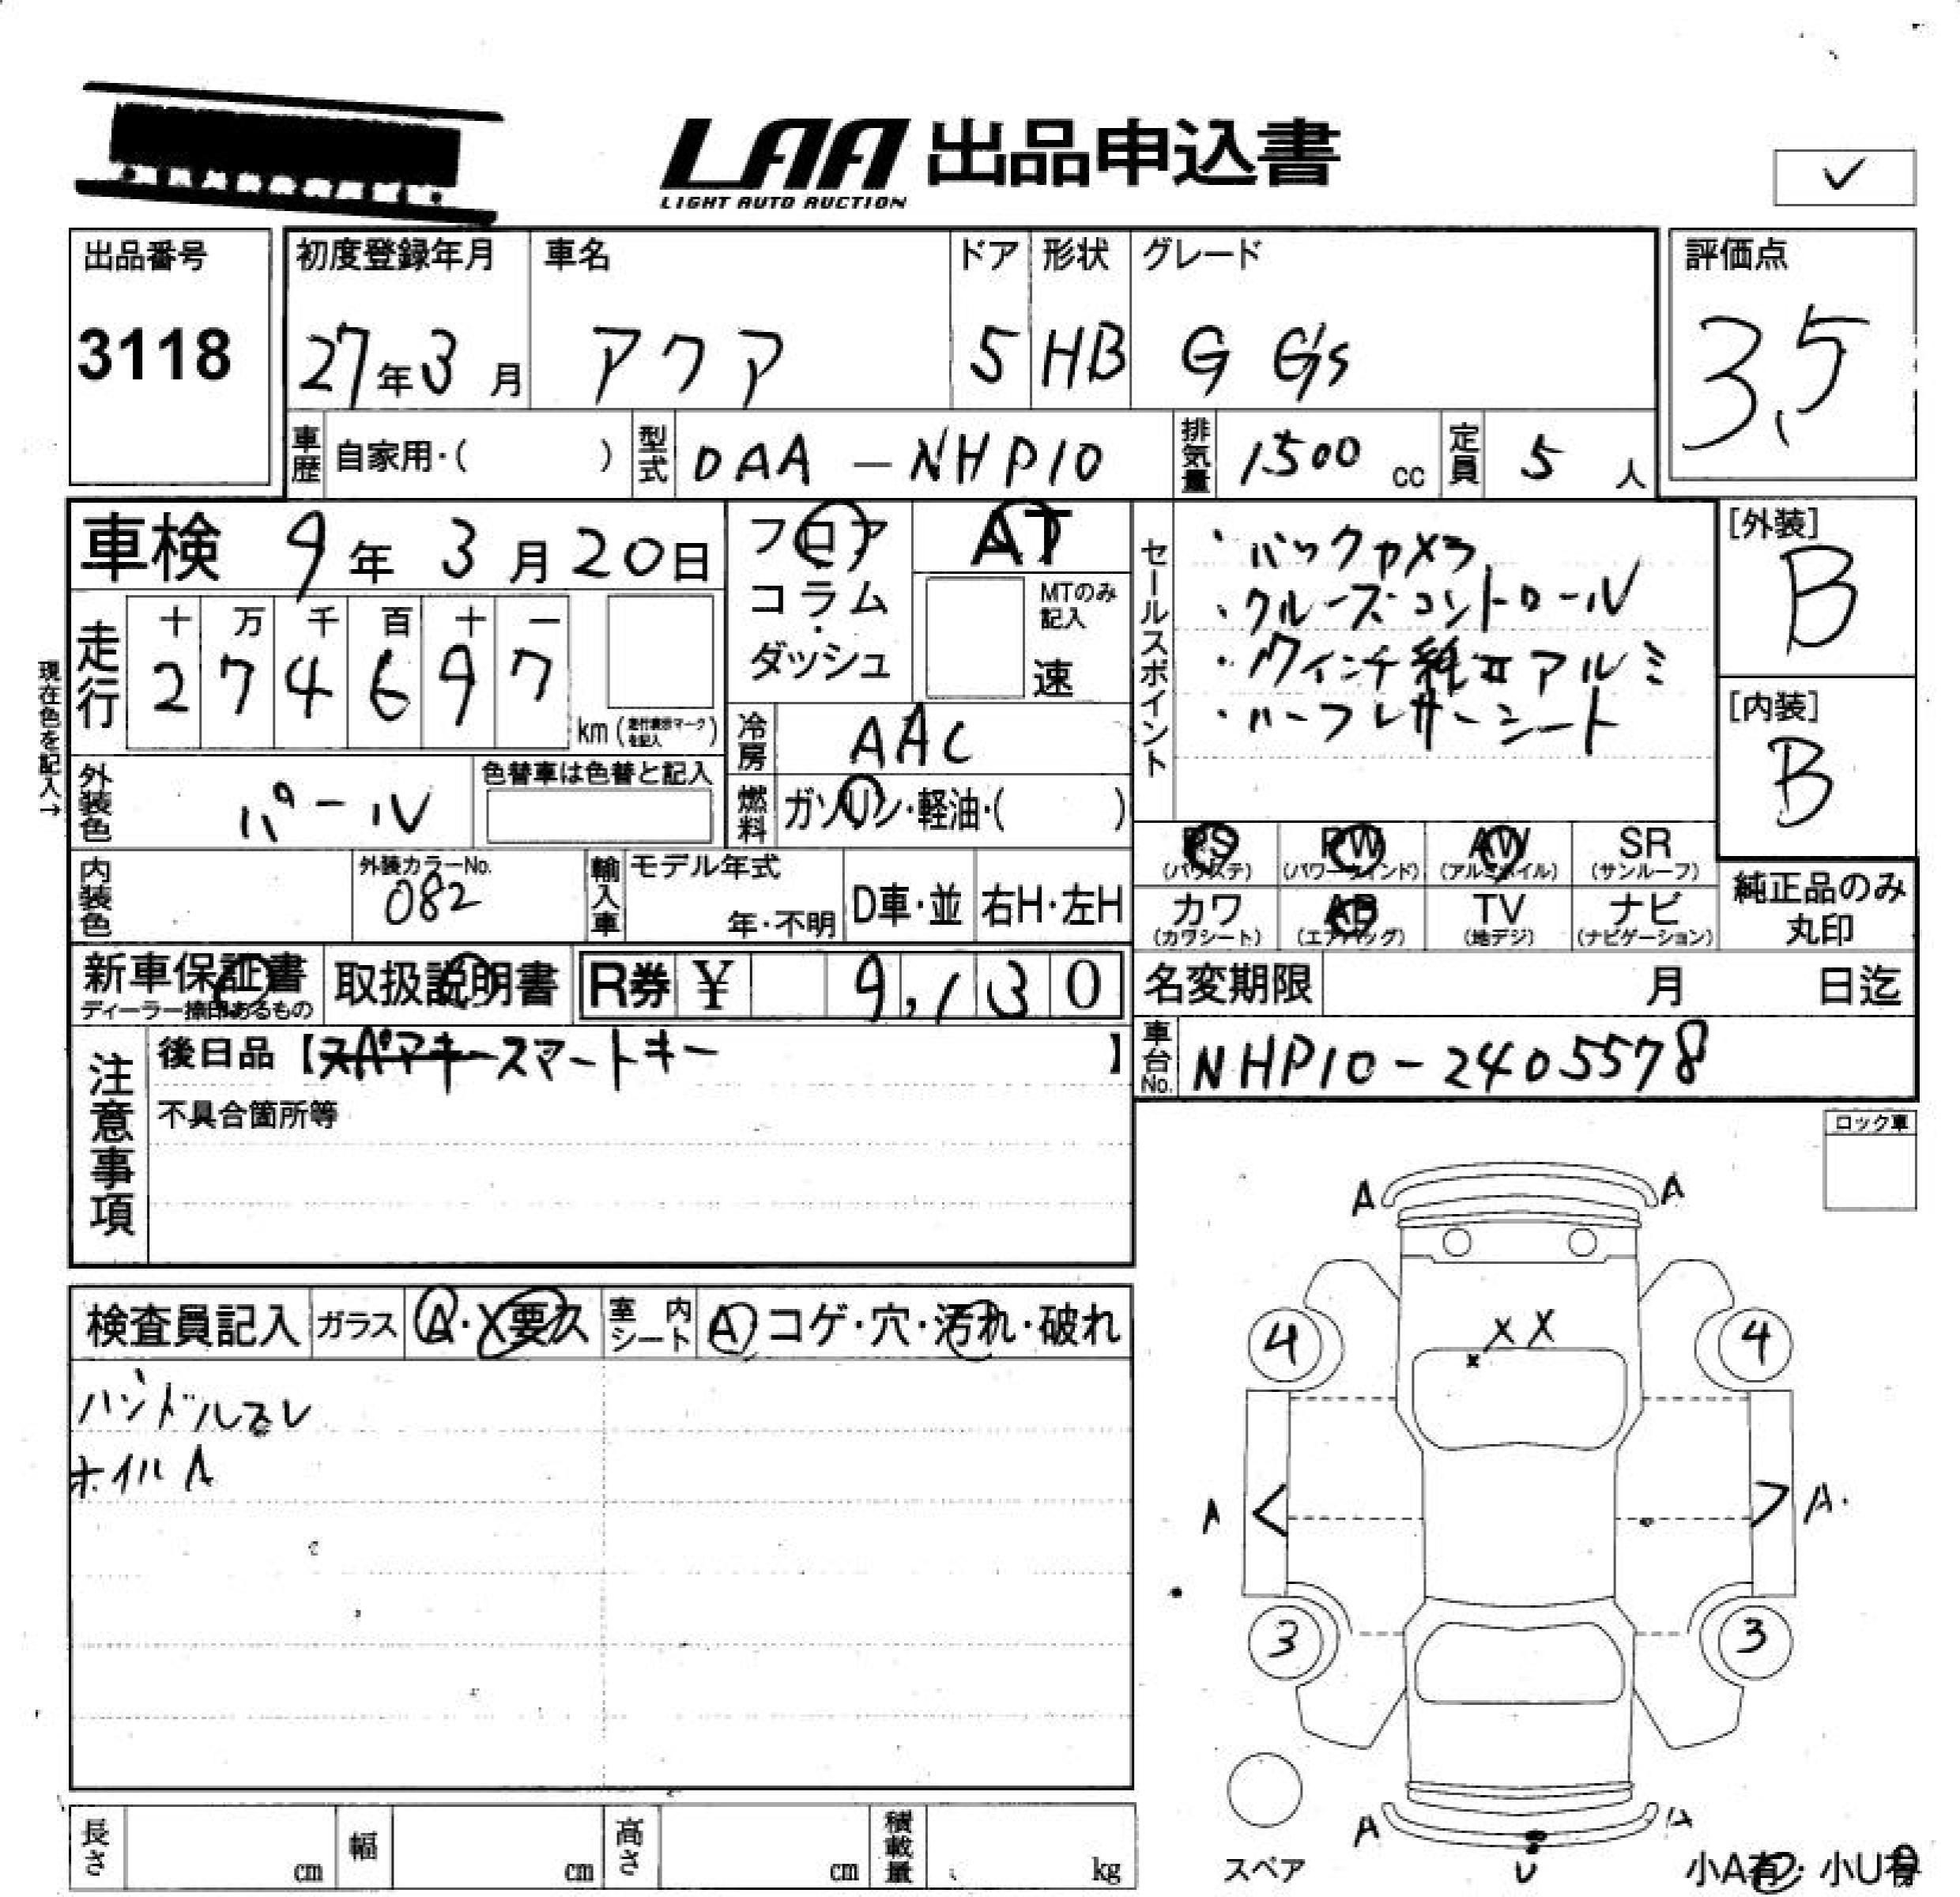 LAA 出品申込書
LIGHT AUTO AUCTION
✓
出品番号
3118
初度登録年月
27年3月
車名
アクア
ドア
5
形状
HB
グレード
G G's
評価点
3.5
車歴 自家用・( )
型式 DAA-NHP10
排気量 1500 cc
定員 5 人
車検 9年3月20日
フロア
コラム
ダッシュ
AT
MTのみ記入
速
セールスポイント
・バックカメラ
・クルーズコントロール
・インチ純正アルミ
・ハーフレザーシート
[外装]
B
[内装]
B
現在色を記入→
走行
十 万 千 百 十 一
2 7 4 6 9 7
km (走行表示マークを記入)
冷房 AAC
外装色 パール
色替車は色替と記入
燃料 ガソリン・軽油・( )
内装色
外装カラーNo.
082
輸入車
モデル年式
年・不明
D車・並
右H・左H
PS (パワステ)
PW (パワーウインド)
AW (アルミホイル)
SR (サンルーフ)
カワ (カワシート)
AB (エアバッグ)
TV (地デジ)
ナビ (ナビゲーション)
純正品のみ丸印
新車保証書
ディーラー捺印あるもの
取扱説明書
R券 ¥ 9,130
名変期限 月 日迄
注意事項
後日品【スペアキースマートキー】
不具合箇所等
車台No. NHP10-2405578
ロック車
検査員記入
ガラス A・X要久
室内シート A コゲ・穴・汚れ・破れ
ハンドルスレ
ホイルA
A A
X X
x
4 4
A < > A
3 3
A A
U
スペア
小A有・小U有
長さ cm
幅 cm
高さ cm
積載量 kg